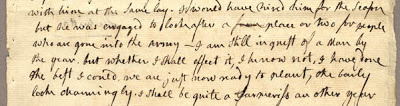 with him at the same Lay. I would have hired him for the Season
but he was engaged to look after a place or two for people
who are gone into the army — I am still in quest of a Man by
the year. but whether I shall effect it, I know not, I have done
the best I could. we are just now ready to plant, the barly
looks charmingly. I shall be quite a Farmeriss an other year